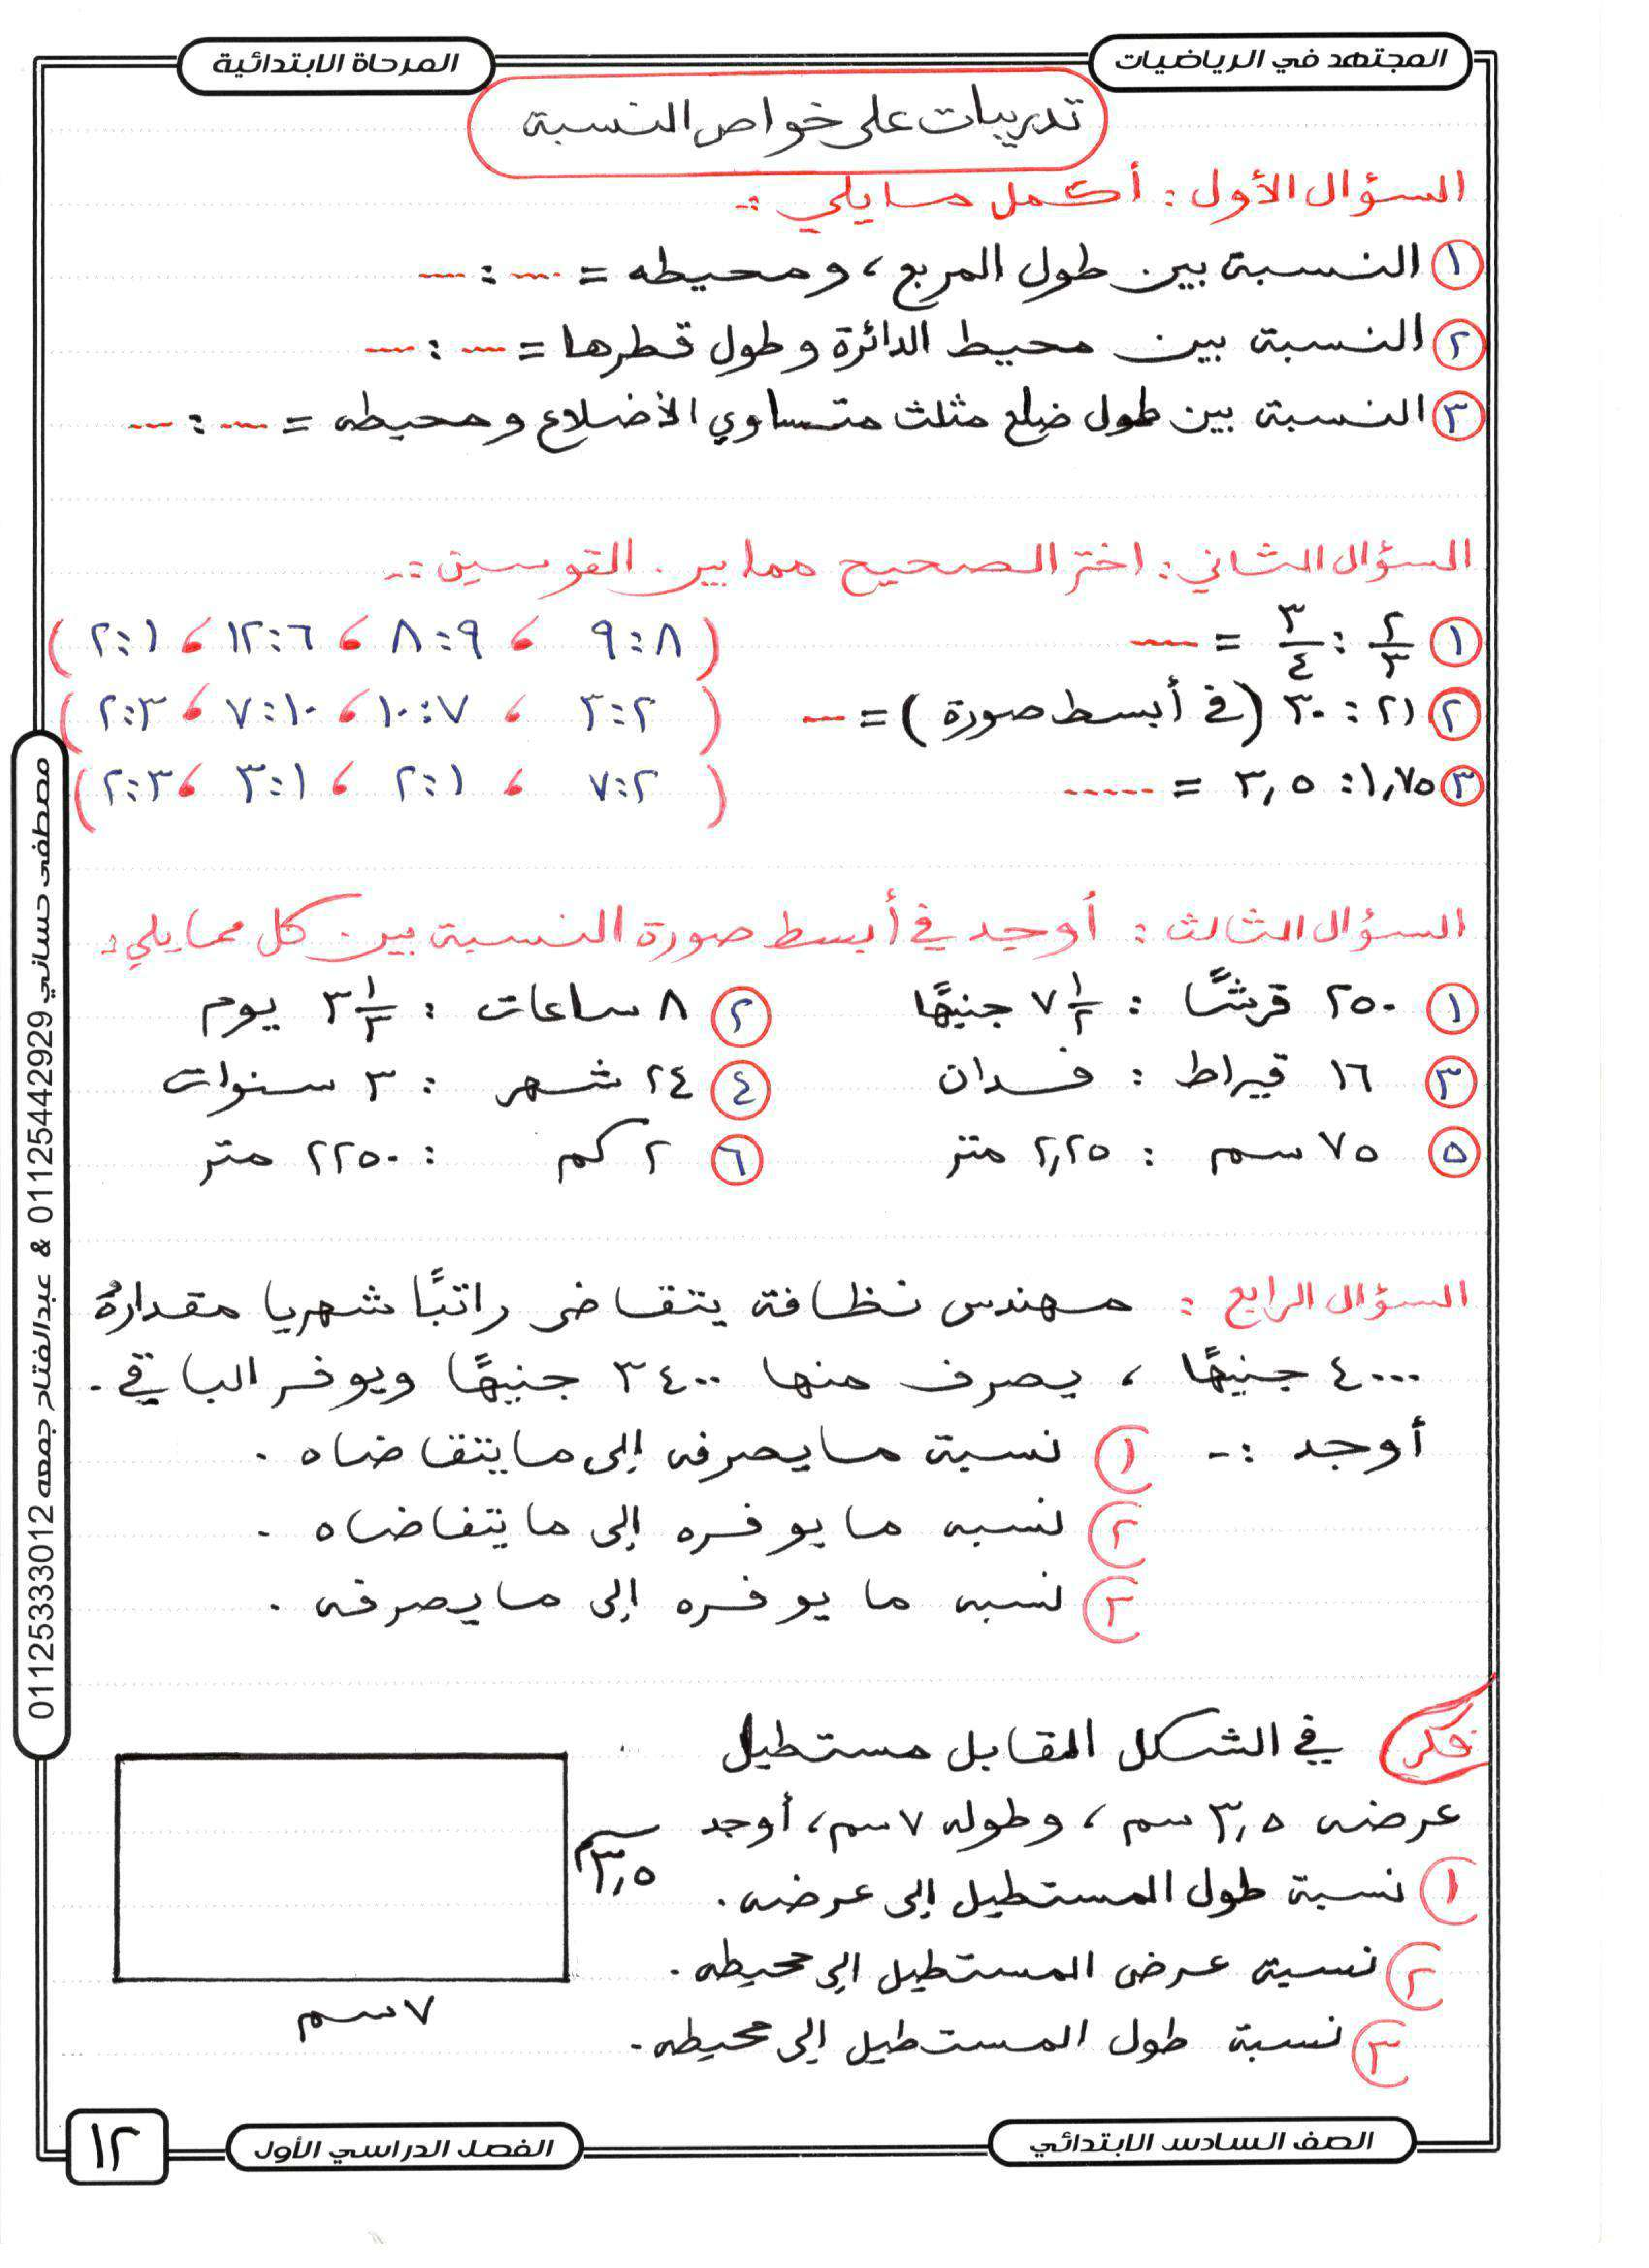 المجتهد في الرياضيات
المرحلة الابتدائية
تدريبات على خواص النسبة
السؤال الأول : أكمل ما يلي :-
١ النسبة بين طول المربع ، ومحيطه = ---- : ----
٢ النسبة بين محيط الدائرة وطول قطرها = ---- : ----
٣ النسبة بين طول ضلع مثلث متساوي الأضلاع ومحيطه = ---- : ----
السؤال الثاني : اختر الصحيح مما بين القوسين :-
١ ٢/٣ : ٣/٤ = ---- ( ٨ : ٩ ، ٩ : ٨ ، ٦ : ١٢ ، ١ : ٢ )
٢ ٢١ : ٣٠ ( في أبسط صورة ) = ---- ( ٢ : ٣ ، ٧ : ١٠ ، ١٠ : ٧ ، ٣ : ٢ )
٣ ١,٧٥ : ٣,٥ = ----- ( ٢ : ٧ ، ١ : ٢ ، ١ : ٣ ، ٣ : ٢ )
السؤال الثالث : أوجد في أبسط صورة النسبة بين كل مما يلي :
١ ٢٥٠ قرشًا : ٧ ١/٢ جنيهًا ٢ ٨ ساعات : ٣ ١/٣ يوم
٣ ١٦ قيراط : فدان ٤ ٢٤ شهر : ٣ سنوات
٥ ٧٥ سم : ٢,٢٥ متر ٦ ٢ كم : ٢٢٥٠ متر
السؤال الرابع : مهندس نظافة يتقاضى راتبًا شهريا مقدارهُ
٤٠٠٠ جنيهًا ، يصرف منها ٣٤٠٠ جنيهًا ويوفر الباقي .
أوجد :- ١ نسبة ما يصرفه إلى ما يتقاضاه .
٢ نسبه ما يوفره إلى ما يتقاضاه .
٣ نسبه ما يوفره إلى ما يصرفه .
فكر في الشكل المقابل مستطيل
عرضه ٣,٥ سم ، وطوله ٧ سم ، أوجد
١ نسبة طول المستطيل إلى عرضه .
٢ نسبة عرض المستطيل إلى محيطه .
٣ نسبة طول المستطيل إلى محيطه .
٣,٥ سم
٧ سم
مصطفى حساني 01125442929 & عبدالفتاح جمعه 01125333012
الصف السادس الابتدائي
الفصل الدراسي الأول
١٢